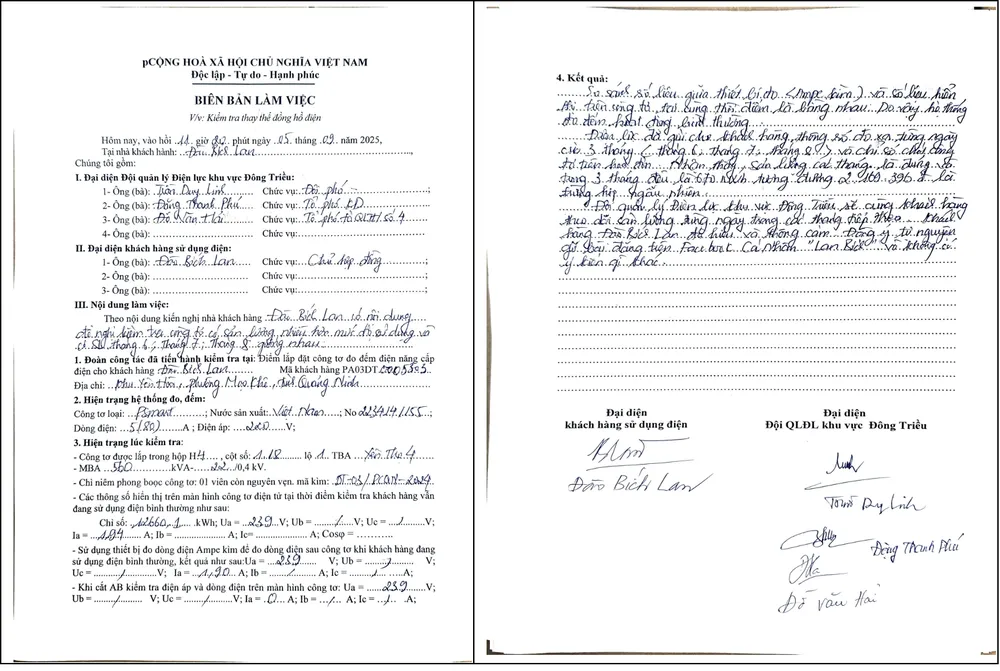 pCỘNG HOÀ XÃ HỘI CHỦ NGHĨA VIỆT NAM
Độc lập - Tự do - Hạnh phúc
BIÊN BẢN LÀM VIỆC
V/v: Kiểm tra thay thế đồng hồ điện
Hôm nay, vào hồi 11 giờ 20 phút ngày 05 tháng 09 năm 2025,
Tại nhà khách hàng: Đào Bích Lan
Chúng tôi gồm:
I. Đại diện Đội quản lý Điện lực khu vực Đông Triều:
1- Ông (bà): Trần Duy Linh Chức vụ: Đội phó ;
2- Ông (bà): Đồng Thanh Phú Chức vụ: Tổ phó KD ;
3- Ông (bà): Đỗ Văn Hải Chức vụ: Tổ phó tổ QLTH số 4
4- Ông (bà): Chức vụ: ;
II. Đại diện khách hàng sử dụng điện:
1- Ông (bà): Đào Bích Lan Chức vụ: Chủ hợp đồng ;
2- Ông (bà): Chức vụ: ;
3- Ông (bà): Chức vụ: ;
III. Nội dung làm việc:
Theo nội dung kiến nghị nhà khách hàng Đào Bích Lan có nội dung
đề nghị kiểm tra công tơ có sản lượng nhiều hơn mức độ sử dụng và
có SL tháng 6; tháng 7; tháng 8 giống nhau
1. Đoàn công tác đã tiến hành kiểm tra tại: Điểm lắp đặt công tơ đo đếm điện năng cấp
điện cho khách hàng Đào Bích Lan Mã khách hàng PA03DT0005393
Địa chỉ: Khu Yên Hòa, phường Mạo Khê, tỉnh Quảng Ninh
2. Hiện trạng hệ thống đo, đếm:
Công tơ loại: PSmart ; Nước sản xuất: Việt Nam ; No 223414155 ;
Dòng điện: 5(80) A ; Điện áp: 220 V;
3. Hiện trạng lúc kiểm tra:
- Công tơ được lắp trong hộp H4 , cột số: 1.18 lộ 1. TBA Yên Thọ 4
- MBA 560 kVA- 22 /0,4 kV.
- Chì niêm phong booc công tơ: 01 viên còn nguyên vẹn. mã kìm:
- Các thông số hiển thị trên màn hình công tơ điện tử tại thời điểm kiểm tra khách hàng vẫn
đang sử dụng điện bình thường như sau:
Chỉ số: 12660,1 kWh; Ua = 239 V; Ub = / V; Uc = / V;
Ia = 1,94 A; Ib = A; Ic= A; Cosφ =
- Sử dụng thiết bị đo dòng điện Ampe kìm để đo dòng điện sau công tơ khi khách hàng đang
sử dụng điện bình thường, kết quả như sau:Ua = 239 V; Ub = / V;
Uc = / V; Ia = 1,90 A; Ib = / A; Ic = / A;
- Khi cắt AB kiểm tra điện áp và dòng điện trên màn hình công tơ: Ua = 239 V;
Ub = / V; Uc = / V; Ia = 0 A; Ib = / A; Ic = / A;
4. Kết quả:
So sánh số liệu giữa thiết bị đo (Ampe kìm) và số liệu hiển
thị trên công tơ tại cùng thời điểm là bằng nhau. Do vậy hệ thống
đo đếm hoạt động bình thường.
Điện lực đã gửi cho khách hàng thông số đo xa từng ngày
của 3 tháng (tháng 6, tháng 7, tháng 8) và chỉ số chốt công
tơ trên hóa đơn. Nhận thấy, sản lượng các tháng là đúng và
trong 3 tháng đều là 670 kWh tương đương 2.160.396 đ là
trường hợp ngẫu nhiên.
Đội quản lý Điện lực khu vực Đông Triều sẽ cùng khách hàng
theo dõi sản lượng từng ngày trong các tháng tiếp theo. Khách
hàng Đào Bích Lan đã hiểu và thông cảm. Đồng ý tự nguyện
gỡ bài đăng trên Facebook Cá nhân "Lan Bích" và không có
ý kiến gì khác.
Đại diện
khách hàng sử dụng điện
Đào Bích Lan
Đại diện
Đội QLĐL khu vực Đông Triều
Trần Duy Linh
Đồng Thanh Phú
Đỗ Văn Hải